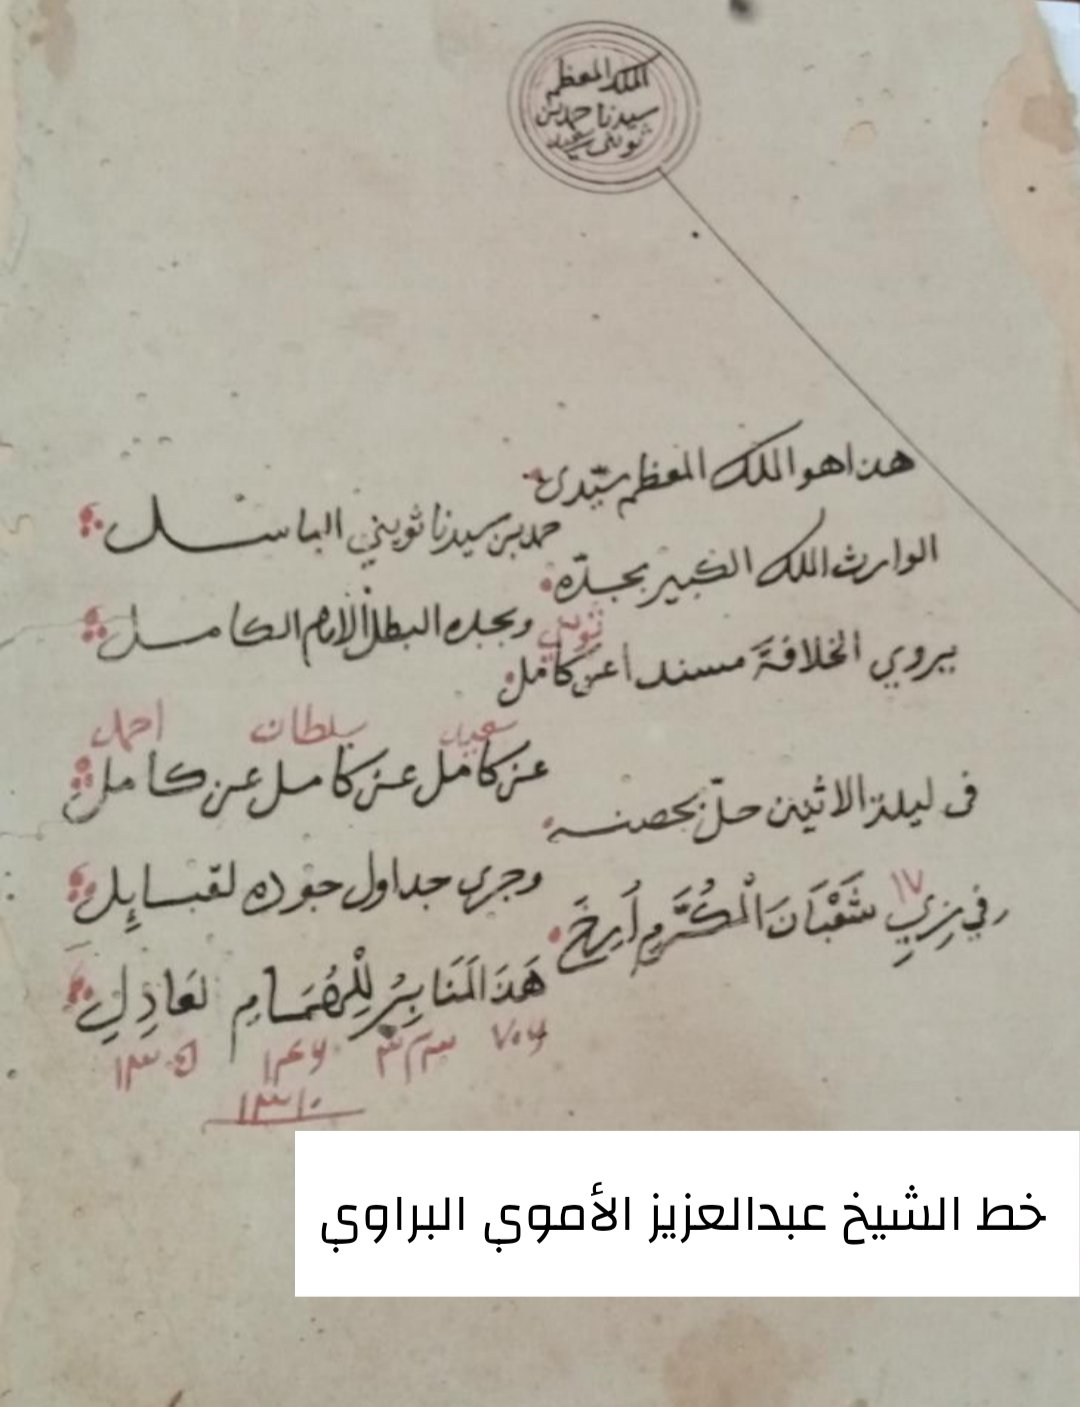 الملك المعظم
سيدنا حمد بن
ثويني سعيد
هذا هو الملك المعظم سيّدي
حمد بن سيدنا ثويني الباسل
الوارث الملك الكبير بجدّه
وبجده البطل الإمام الكامل
ثويني
يروي الخلافة مسندا عن كامل
سعيد سلطان احمد
عن كامل عن كامل عن كامل
في ليلة الاثنين حلّ بحصنه
وجرى جداول جوده لقبايل
١٧
في زي شَعْبَانَ الْمُكَرَّمِ أَرِخَ
هَذَ المَنَابِرُ لِلْهُمَامِ لعَادِلِ
٧٠٦ ٣٢٣ ١٤٦ ١٣٥
١٣١٠
خط الشيخ عبدالعزيز الأموي البراوي